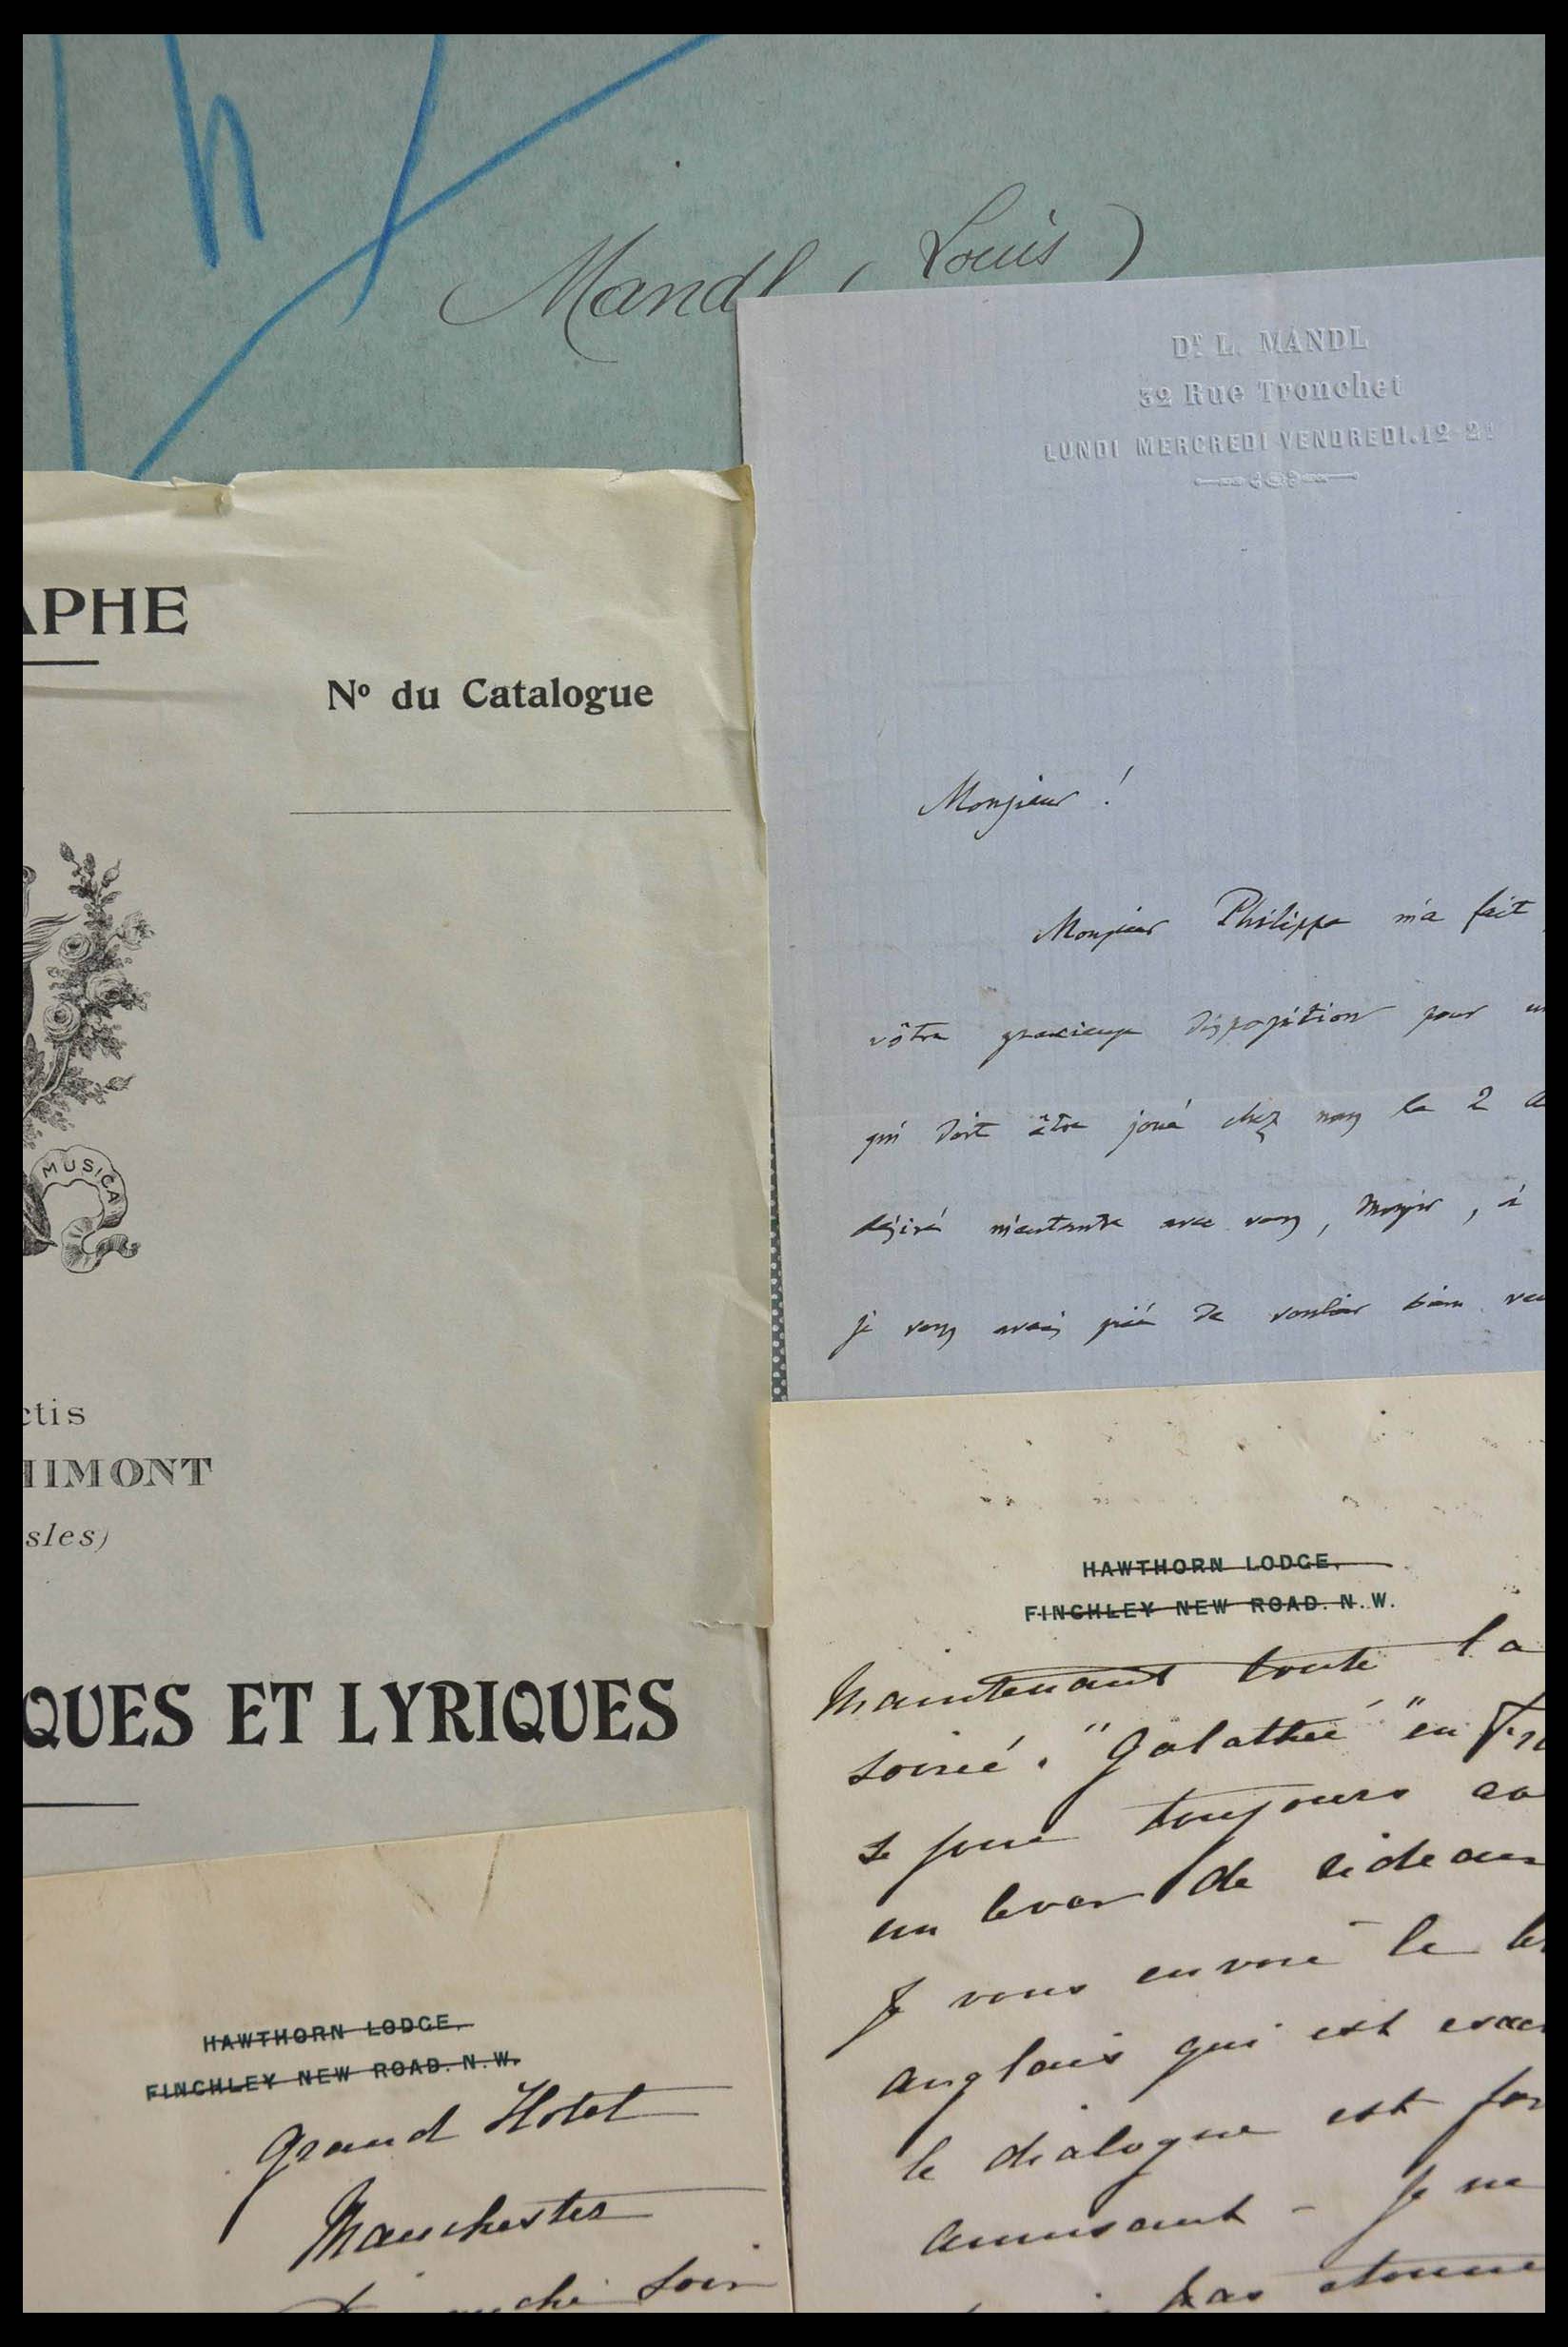 Mandl (Louis)
Dr L. MANDL
32 Rue Tronchet
LUNDI MERCREDI VENDREDI. 12-2
Monsieur !
Monsieur Philippe m'a fait
vôtre gracieuse disposition pour
qui doit être joué chez nous le 2
désiré m'entendre avec vous, Monsieur, à
je vous avais prié de vouloir bien
APHE
No du Catalogue
MUSICA
ctis
HIMONT
sles)
QUES ET LYRIQUES
HAWTHORN LODGE.
FINCHLEY NEW ROAD. N.W.
Grand Hotel
Manchester
soir
HAWTHORN LODGE.
FINCHLEY NEW ROAD. N.W.
Maintenant toute la
soirée. "Galathée" en
se joue toujours
un lever de rideau
Je vous envoie le
anglais qui est
le dialogue est
amusant - Je ne
pas